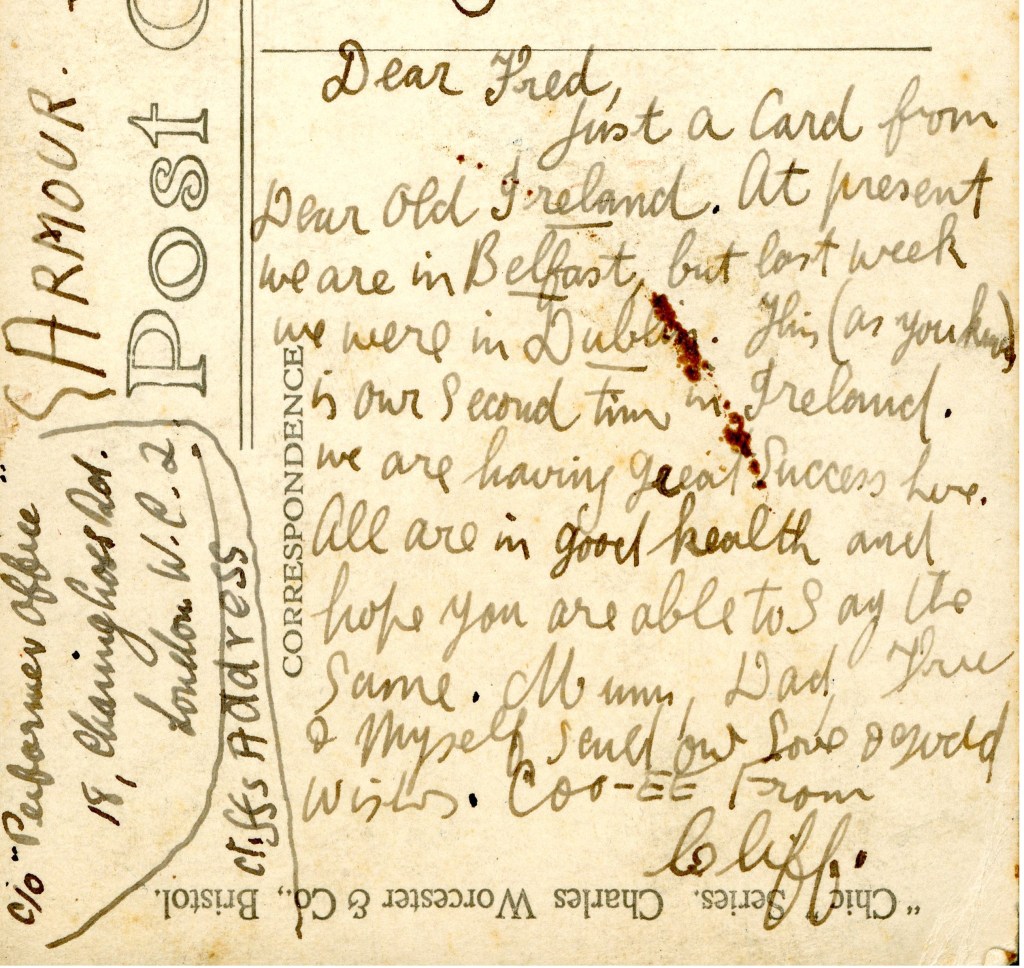 Dear Fred,
Just a Card from
Dear Old Ireland. At present
we are in Belfast, but last week
we were in Dublin. This (as you know)
is our Second time in Ireland.
we are having great Success here.
All are in good health and
hope you are able to Say the
Same. Mum, Dad,
& Myself send our Love & good
wishes. Coo-EE From
Cliff.
CORRESPONDENCE
Post C
ARMOUR.
c/o "Performer Office"
18, Charing Cross Rd.
London W.C.2
Cliffs Address
"Chic" Series. Charles Worcester & Co., Bristol.